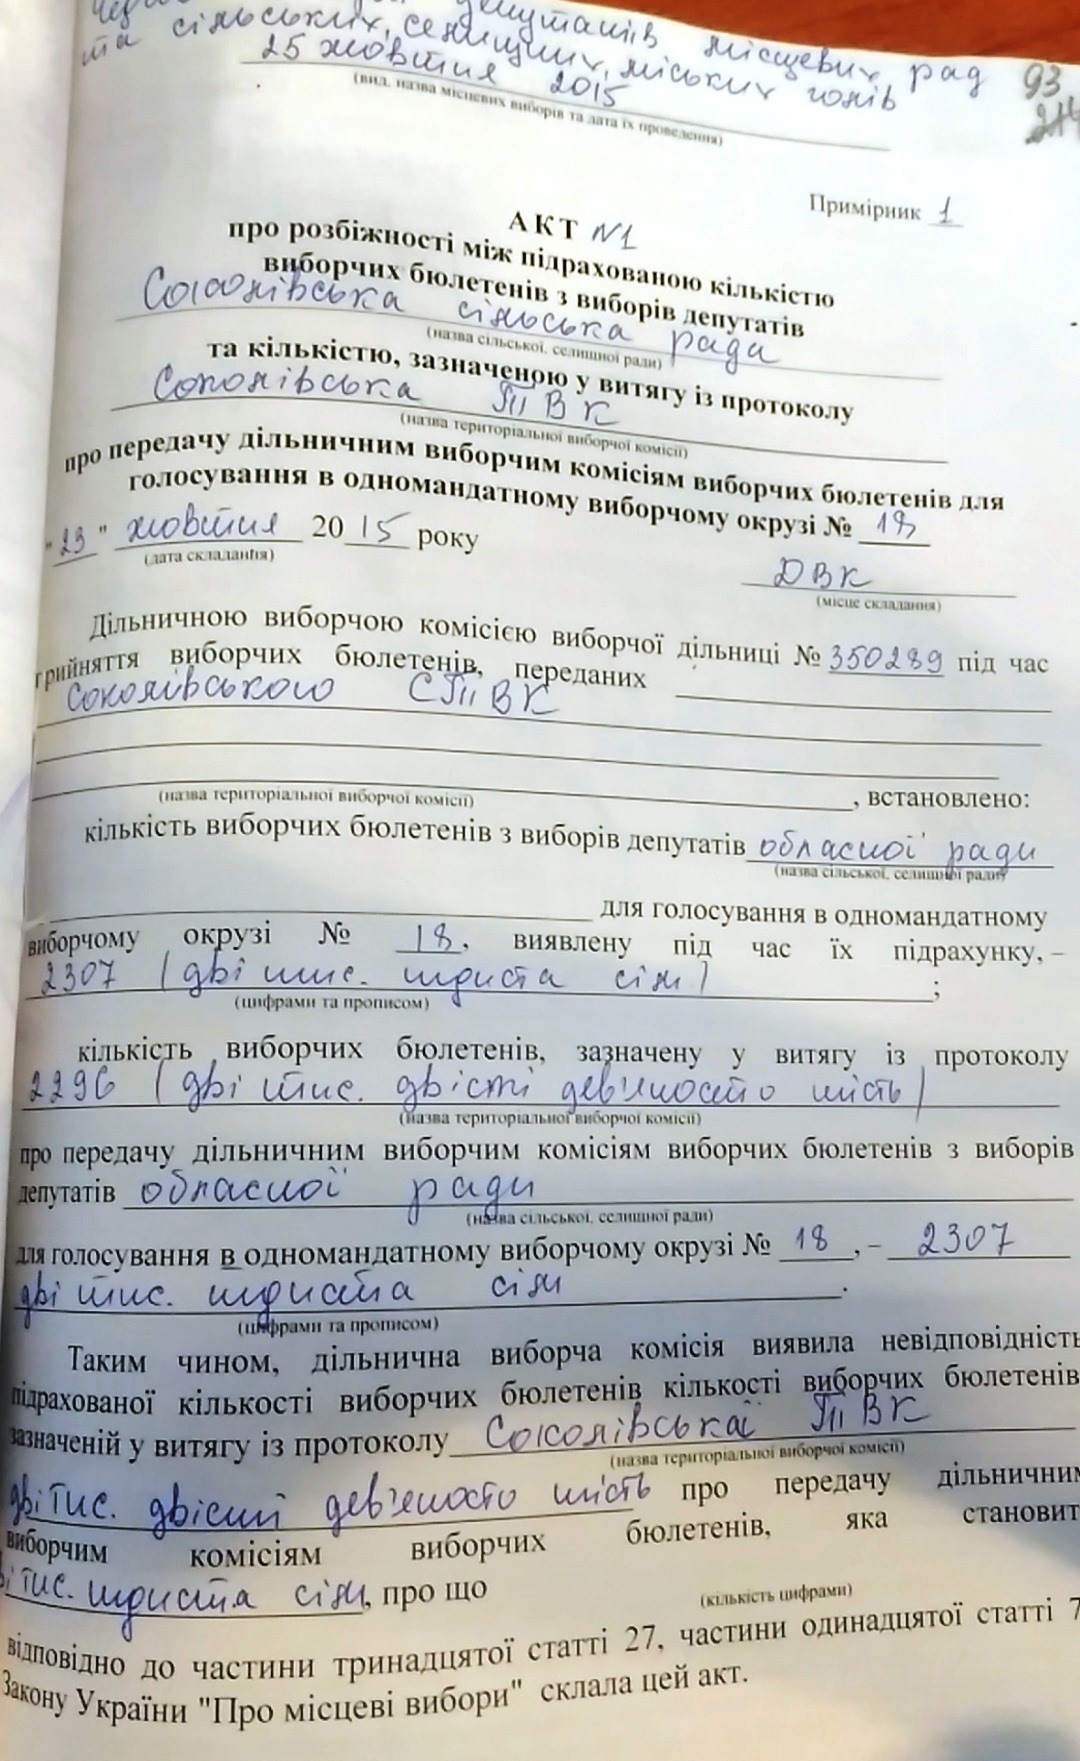 депутатів місцевих рад 93
та сільських, селищних, міських голів
25 жовтня 2015
(вид, назва місцевих виборів та дата їх проведення)
Примірник 1
АКТ №1
про розбіжності між підрахованою кількістю
виборчих бюлетенів з виборів депутатів
Соколівська сільська рада
(назва сільської, селищної ради)
та кількістю, зазначеною у витягу із протоколу
Соколівська ТВК
(назва територіальної виборчої комісії)
про передачу дільничним виборчим комісіям виборчих бюлетенів для
голосування в одномандатному виборчому окрузі № 18
"23" жовтня 2015 року
(дата складання)
ДВК
(місце складання)
Дільничною виборчою комісією виборчої дільниці № 350289 під час
прийняття виборчих бюлетенів, переданих
Соколівського СТВК
(назва територіальної виборчої комісії) , встановлено:
кількість виборчих бюлетенів з виборів депутатів обласної ради
(назва сільської, селищної ради)
для голосування в одномандатному
виборчому окрузі № 18, виявлену під час їх підрахунку, –
2307 (дві тис. триста сім) ;
(цифрами та прописом)
кількість виборчих бюлетенів, зазначену у витягу із протоколу
2296 (дві тис. двісті дев'яносто шість)
(назва територіальної виборчої комісії)
про передачу дільничним виборчим комісіям виборчих бюлетенів з виборів
депутатів обласної ради
(назва сільської, селищної ради)
для голосування в одномандатному виборчому окрузі № 18 , – 2307
дві тис. триста сім .
(цифрами та прописом)
Таким чином, дільнична виборча комісія виявила невідповідність
підрахованої кількості виборчих бюлетенів кількості виборчих бюлетенів
зазначеній у витягу із протоколу Соколівської ТВК
(назва територіальної виборчої комісії)
дві тис. двісті дев'яносто шість про передачу дільничним
виборчим комісіям виборчих бюлетенів, яка становит
дві тис. триста сім, про що
(кількість цифрами)
відповідно до частини тринадцятої статті 27, частини одинадцятої статті 7
Закону України "Про місцеві вибори" склала цей акт.